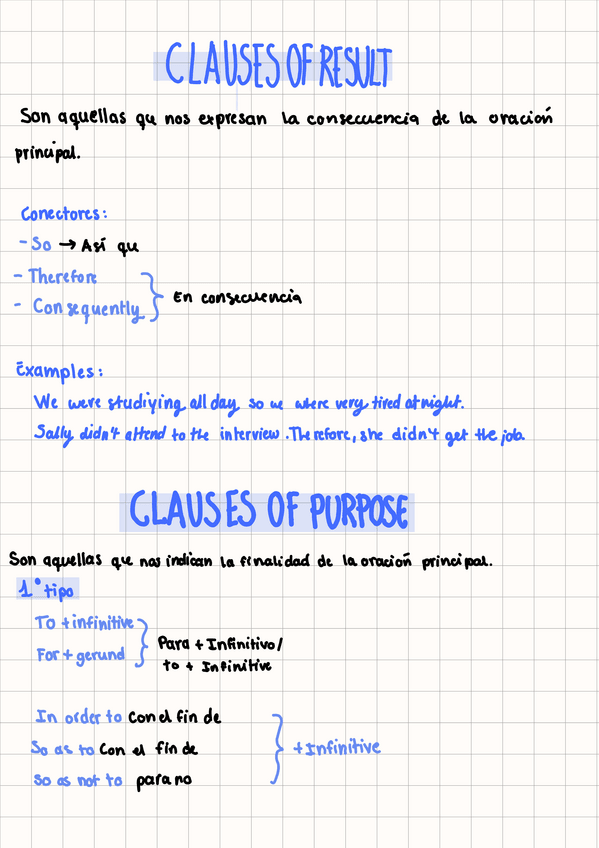 CLAUSES OF RESULT
Son aquellas qu nos expresan la consecuencia de la oración
principal.
Conectores:
- So → Así qu
- Therefore
- Consequently
En consecuencia
Examples:
We were studiying all day, so we where very tired at night.
Sally didn't attend to the interview. Therefore, she didn't get the job.
CLAUSES OF PURPOSE
Son aquellas que nos indican la finalidad de la oración principal.
1º tipo
To + infinitive
For + gerund
Para + Infinitivo/
to + Infinitive
In order to Con el fin de
So as to Con el fin de
So as not to para no
+ Infinitive